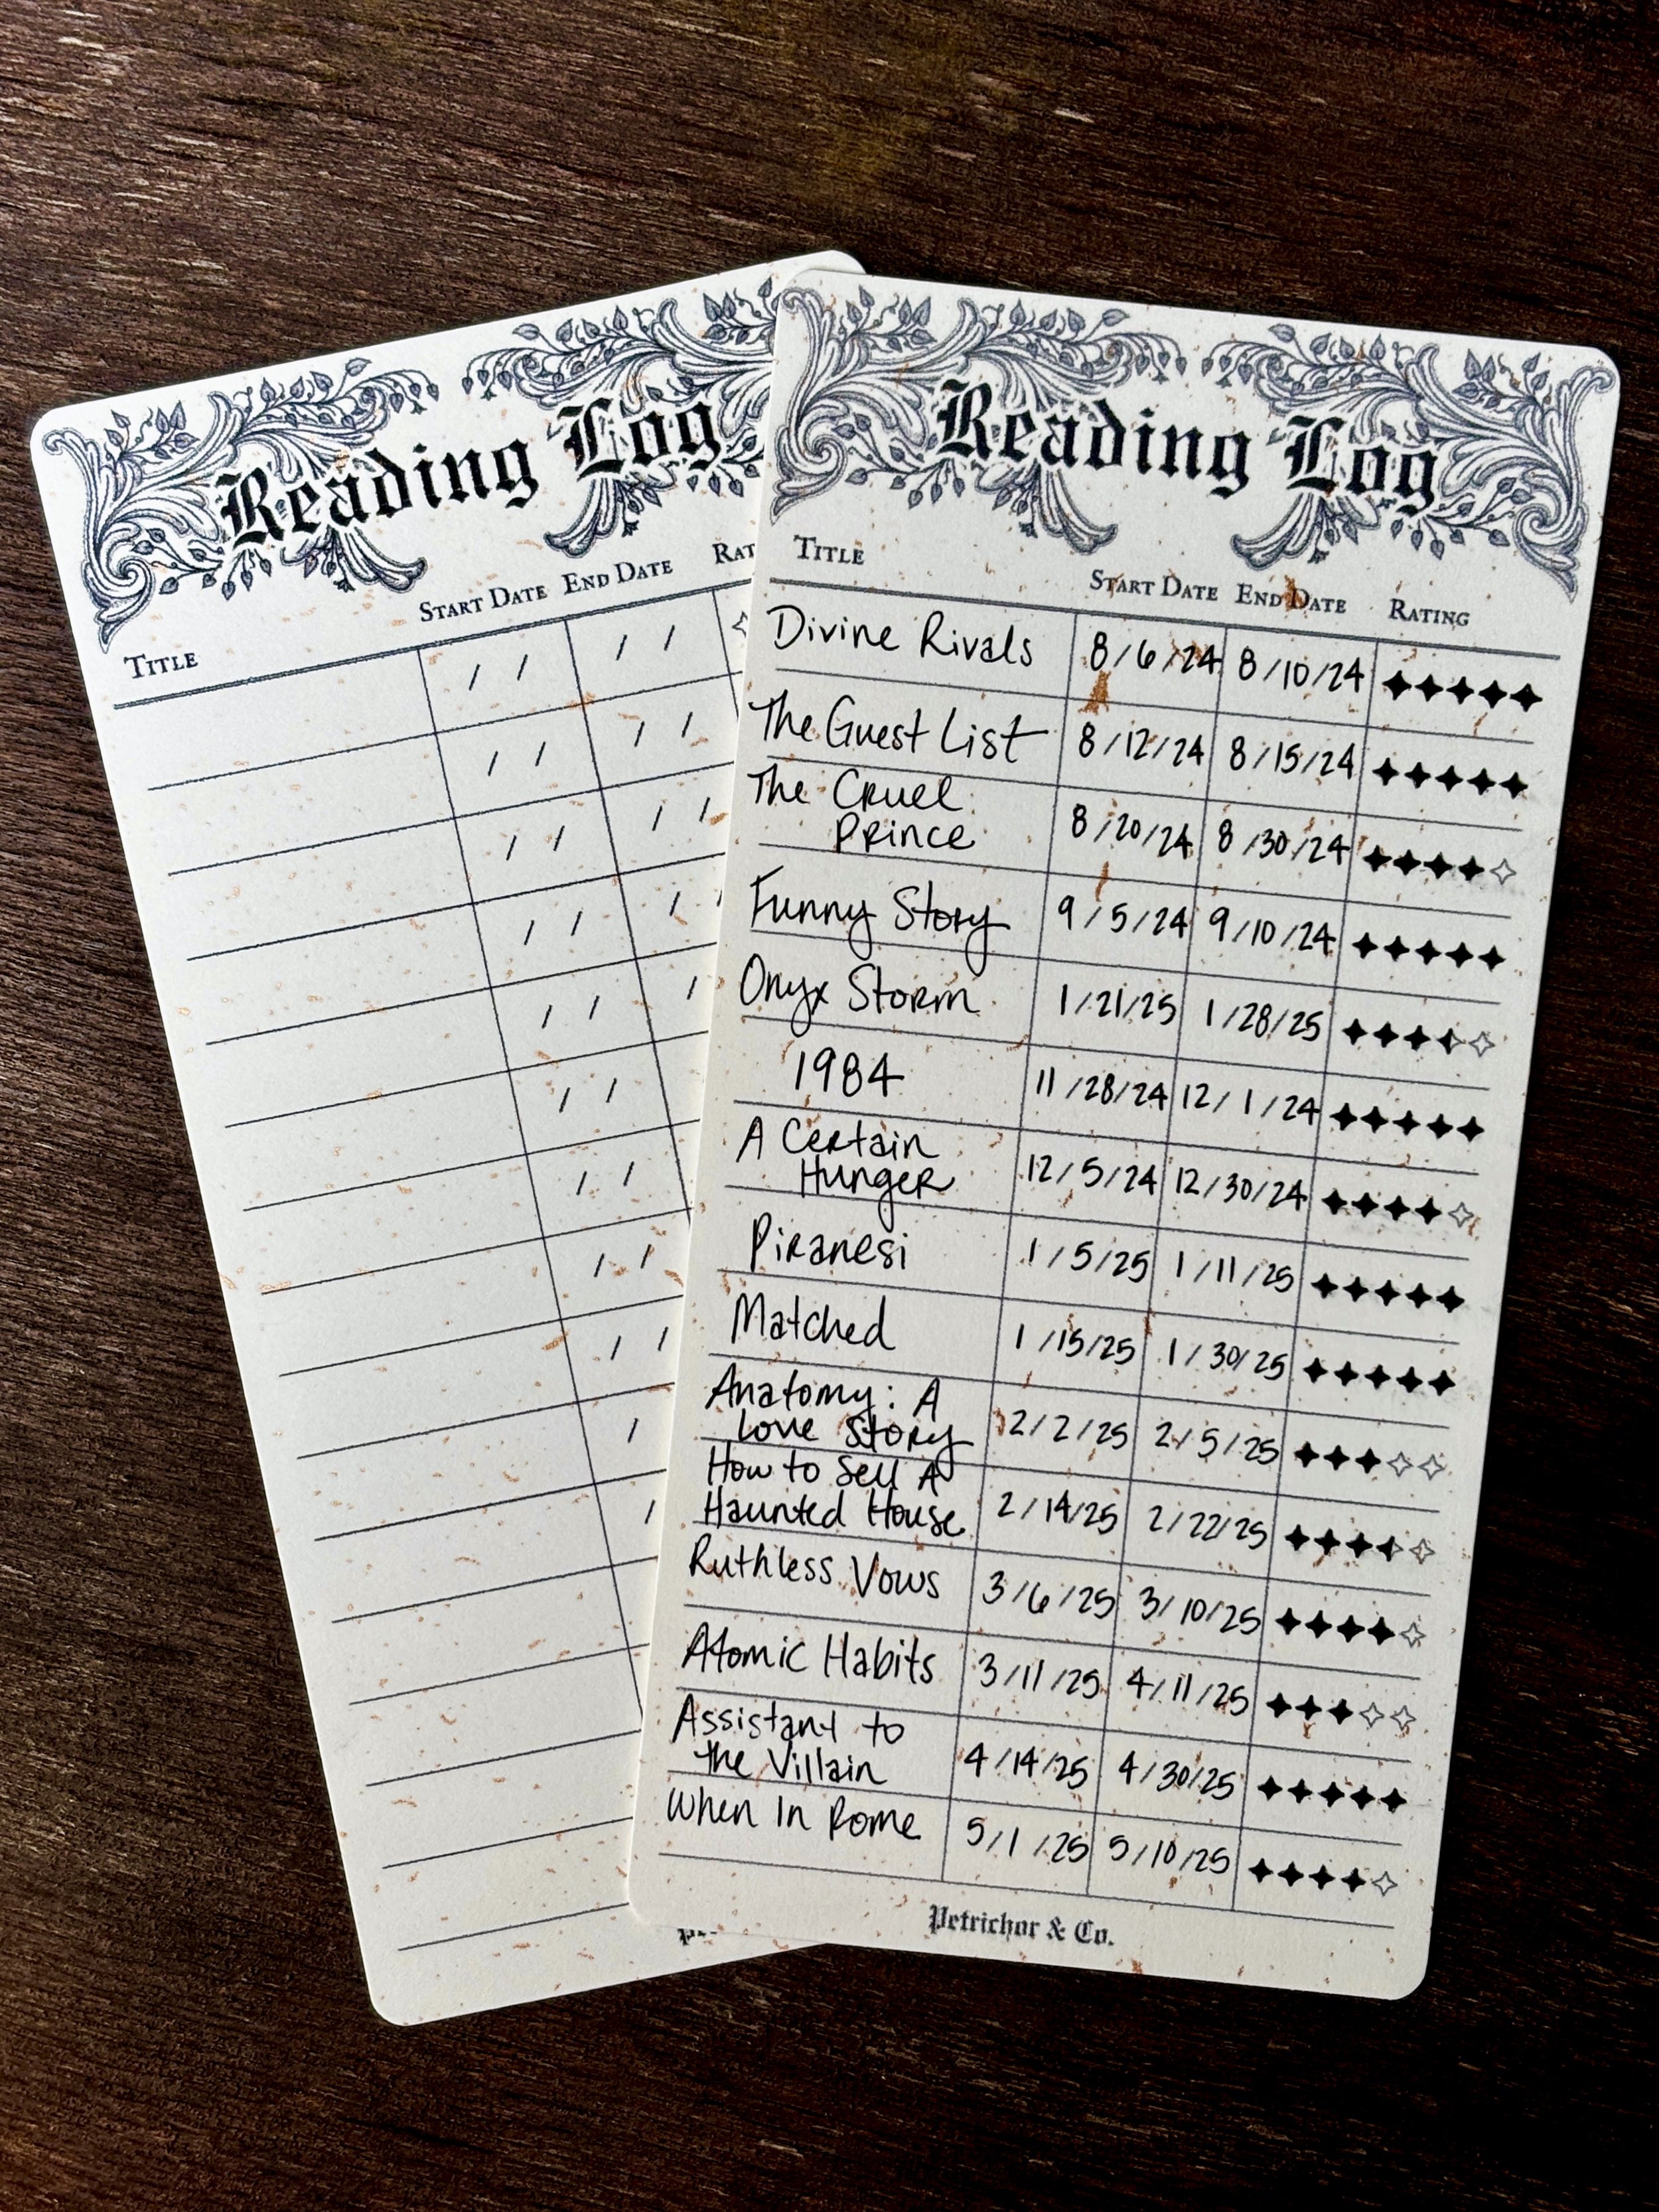 Reading Log
TITLE START DATE END DATE RAT
/ / / /
/ / / /
/ / / /
/ / / /
/ / /
/ /
/ /
/ /
/ /
/
/
Reading Log
TITLE START DATE END DATE RATING
Divine Rivals 8/6/24 8/10/24 ✦✦✦✦✦
The Guest List 8/12/24 8/15/24 ✦✦✦✦✦
The Cruel
Prince 8/20/24 8/30/24 ✦✦✦✦✧
Funny Story 9/5/24 9/10/24 ✦✦✦✦✦
Onyx Storm 1/21/25 1/28/25 ✦✦✦✦✧
1984 11/28/24 12/1/24 ✦✦✦✦✦
A Certain
Hunger 12/5/24 12/30/24 ✦✦✦✦✧
Piranesi 1/5/25 1/11/25 ✦✦✦✦✦
Matched 1/15/25 1/30/25 ✦✦✦✦✦
Anatomy: A
Love Story 2/2/25 2/5/25 ✦✦✦✧✧
How to Sell A
Haunted House 2/14/25 2/22/25 ✦✦✦✦✧
Ruthless Vows 3/6/25 3/10/25 ✦✦✦✦✧
Atomic Habits 3/11/25 4/11/25 ✦✦✦✧✧
Assistant to
the Villain 4/14/25 4/30/25 ✦✦✦✦✦
When In Rome 5/1/25 5/10/25 ✦✦✦✦✧
Petrichor & Co.